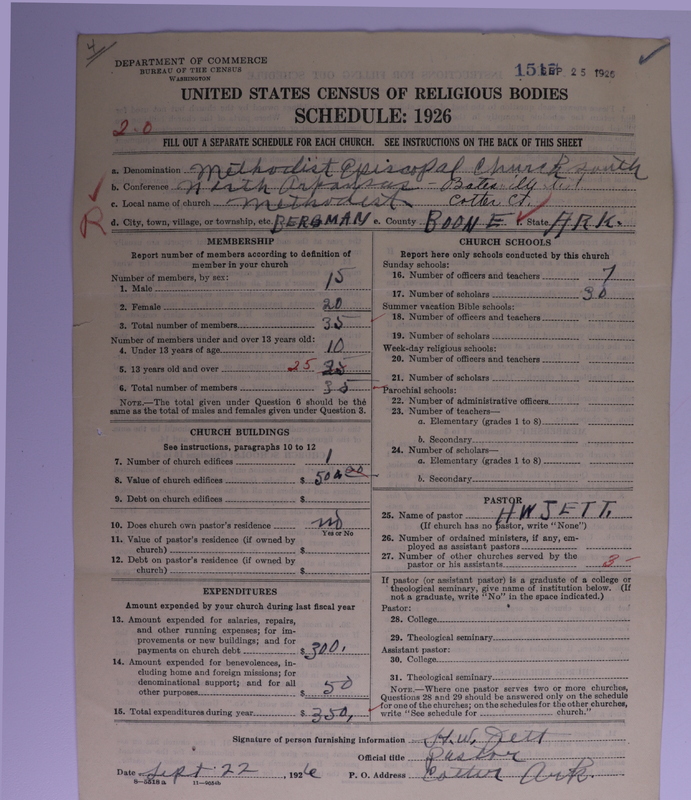 4
DEPARTMENT OF COMMERCE
BUREAU OF THE CENSUS
WASHINGTON
SEP 25 1926
UNITED STATES CENSUS OF RELIGIOUS BODIES
SCHEDULE: 1926
2-0
FILL OUT A SEPARATE SCHEDULE FOR EACH CHURCH. SEE INSTRUCTIONS ON THE BACK OF THIS SHEET
a. Denomination Methodist Episcopal Church South
b. Conference North Arkansas -
c. Local name of church Methodist Cotter Ct.
R
d. City, town, village, or township, etc. BERGMAN e. County BOONE f. State ARK.
MEMBERSHIP
Report number of members according to definition of
member in your church
Number of members, by sex:
1. Male 15
2. Female 20
3. Total number of members 35
Number of members under and over 13 years old:
4. Under 13 years of age 10
5. 13 years old and over 25 25
6. Total number of members 35
NOTE.—The total given under Question 6 should be the
same as the total of males and females given under Question 3.
CHURCH BUILDINGS
See instructions, paragraphs 10 to 12
7. Number of church edifices 1
8. Value of church edifices $ 500 00
9. Debt on church edifices $
10. Does church own pastor's residence no
Yes or No
11. Value of pastor's residence (if owned by
church) $
12. Debt on pastor's residence (if owned by
church) $
EXPENDITURES
Amount expended by your church during last fiscal year
13. Amount expended for salaries, repairs,
and other running expenses; for im-
provements or new buildings; and for
payments on church debt $ 300.
14. Amount expended for benevolences, in-
cluding home and foreign missions; for
denominational support; and for all
other purposes $ 50
15. Total expenditures during year $ 350.
CHURCH SCHOOLS
Report here only schools conducted by this church
Sunday schools:
16. Number of officers and teachers 7
17. Number of scholars 30
Summer vacation Bible schools:
18. Number of officers and teachers
19. Number of scholars
Week-day religious schools:
20. Number of officers and teachers
21. Number of scholars
Parochial schools:
22. Number of administrative officers
23. Number of teachers—
a. Elementary (grades 1 to 8)
b. Secondary
24. Number of scholars—
a. Elementary (grades 1 to 8)
b. Secondary
PASTOR
25. Name of pastor H W JETT.
(If church has no pastor, write "None")
26. Number of ordained ministers, if any, em-
ployed as assistant pastors
27. Number of other churches served by the
pastor or his assistants 3
If pastor (or assistant pastor) is a graduate of a college or
theological seminary, give name of institution below. (If
not a graduate, write "No" in the space indicated.)
Pastor:
28. College
29. Theological seminary
Assistant pastor:
30. College
31. Theological seminary
NOTE.—Where one pastor serves two or more churches,
Questions 28 and 29 should be answered only on the schedule
for one of the churches; on the schedules for the other churches,
write "See schedule for church."
Signature of person furnishing information H. W. Jett
Official title Pastor
Date Sept 22, 1926 P. O. Address Cotter Ark.